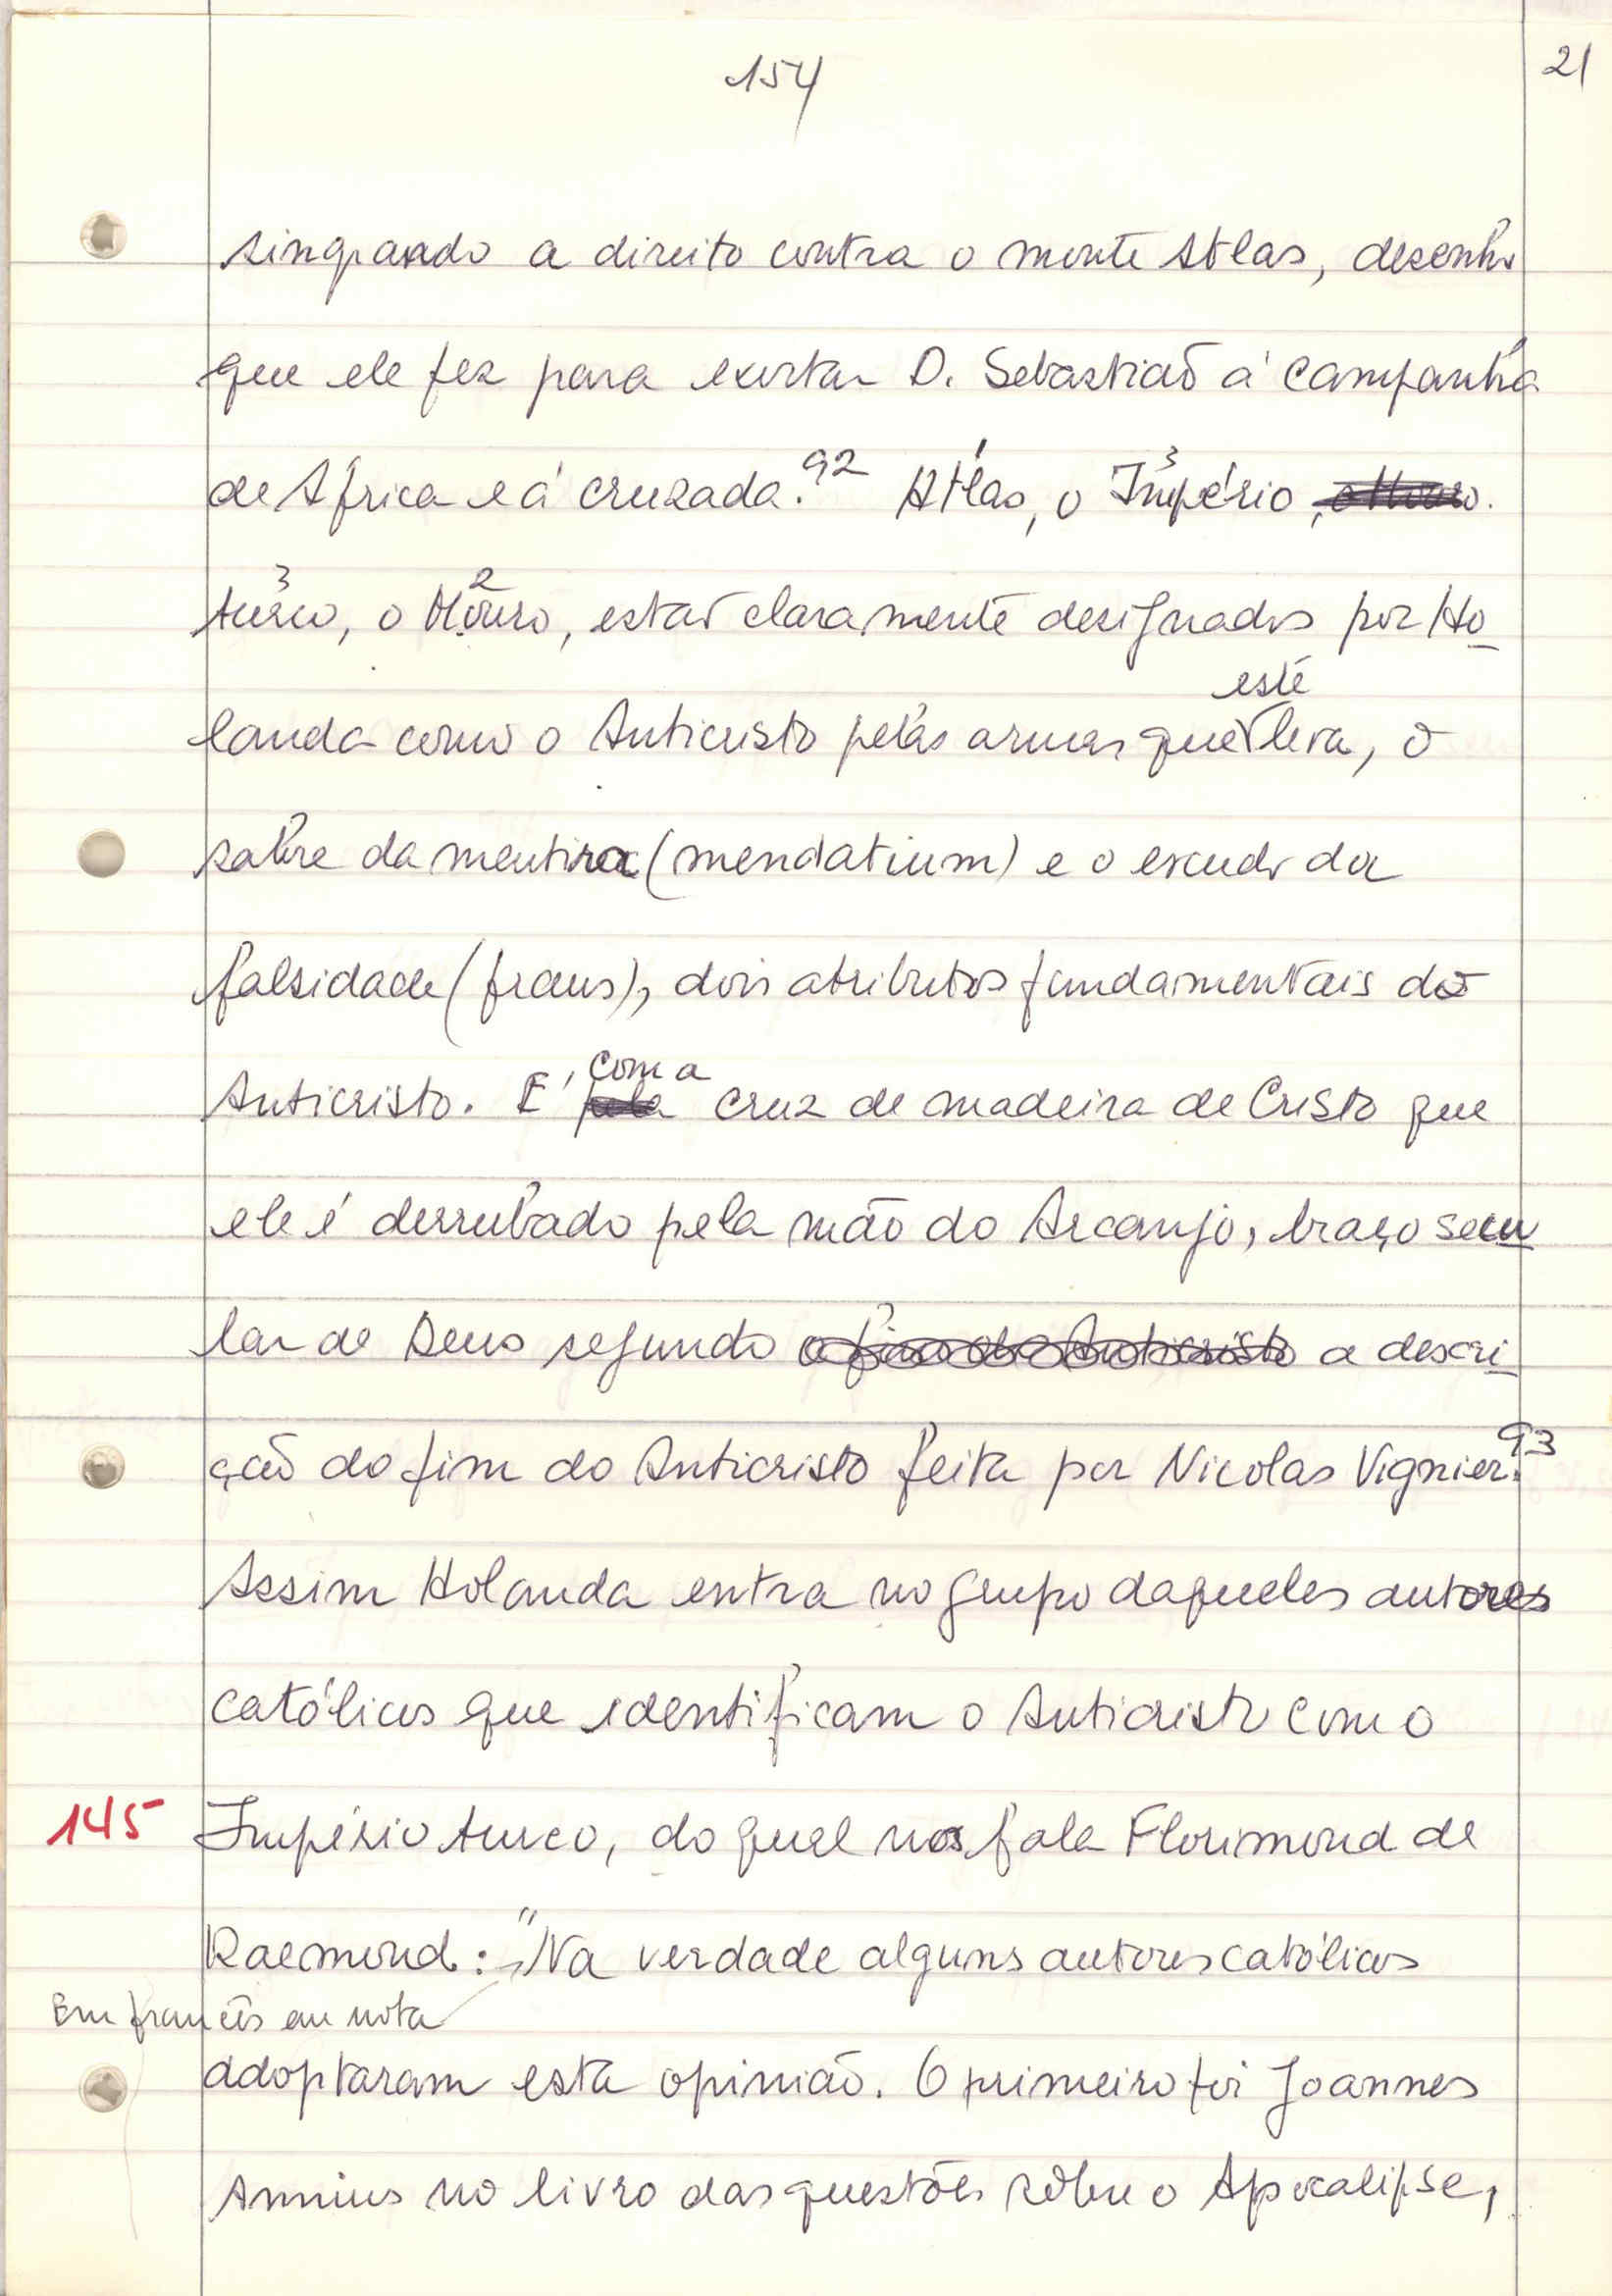 154
21
singrando a direito contra o monte Atlas, desenho
que ele fez para exortar D. Sebastião á campanha
de África e á cruzada.92 Atlas, o Império
3
3 2
turco, o Mouro, estão claramente designados por Ho
este
landa como o Anticristo pelas armas que leva, o
sabre da mentira (mendatium) e o escudo da
falsidade (fraus), dois atributos fundamentais do
com a
Anticristo. É pela cruz de madeira de Cristo que
ele é derrubado pela mão do Arcanjo, braço secu
lar de Deus segundo o fim do Anticristo a descri
ção do fim do Anticristo feita por Nicolas Vignier.93
Assim Holanda entra no grupo daqueles autores
católicos que identificam o Anticristo com o
145 Império turco, do qual nos fala Florimond de
Raemond: "Na verdade alguns autores católicos
Em francês em nota
adoptaram esta opinião. O primeiro foi Joannes
Annius no livro das questões sôbre o Apocalipse,